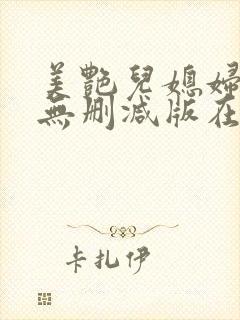 美艷兒媳婦
無刪減版在
卡扎伊